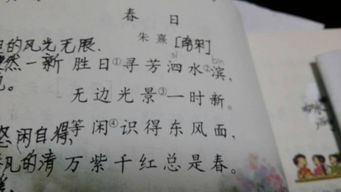 春 日
朱 熹 [南宋]
的风光无限.
然一新 胜日①寻芳泗水②滨,
sì bīn
无边光景③一时新。
悠闲自得, 等闲④识得东风面,
平凡的清 万紫千红总是春。